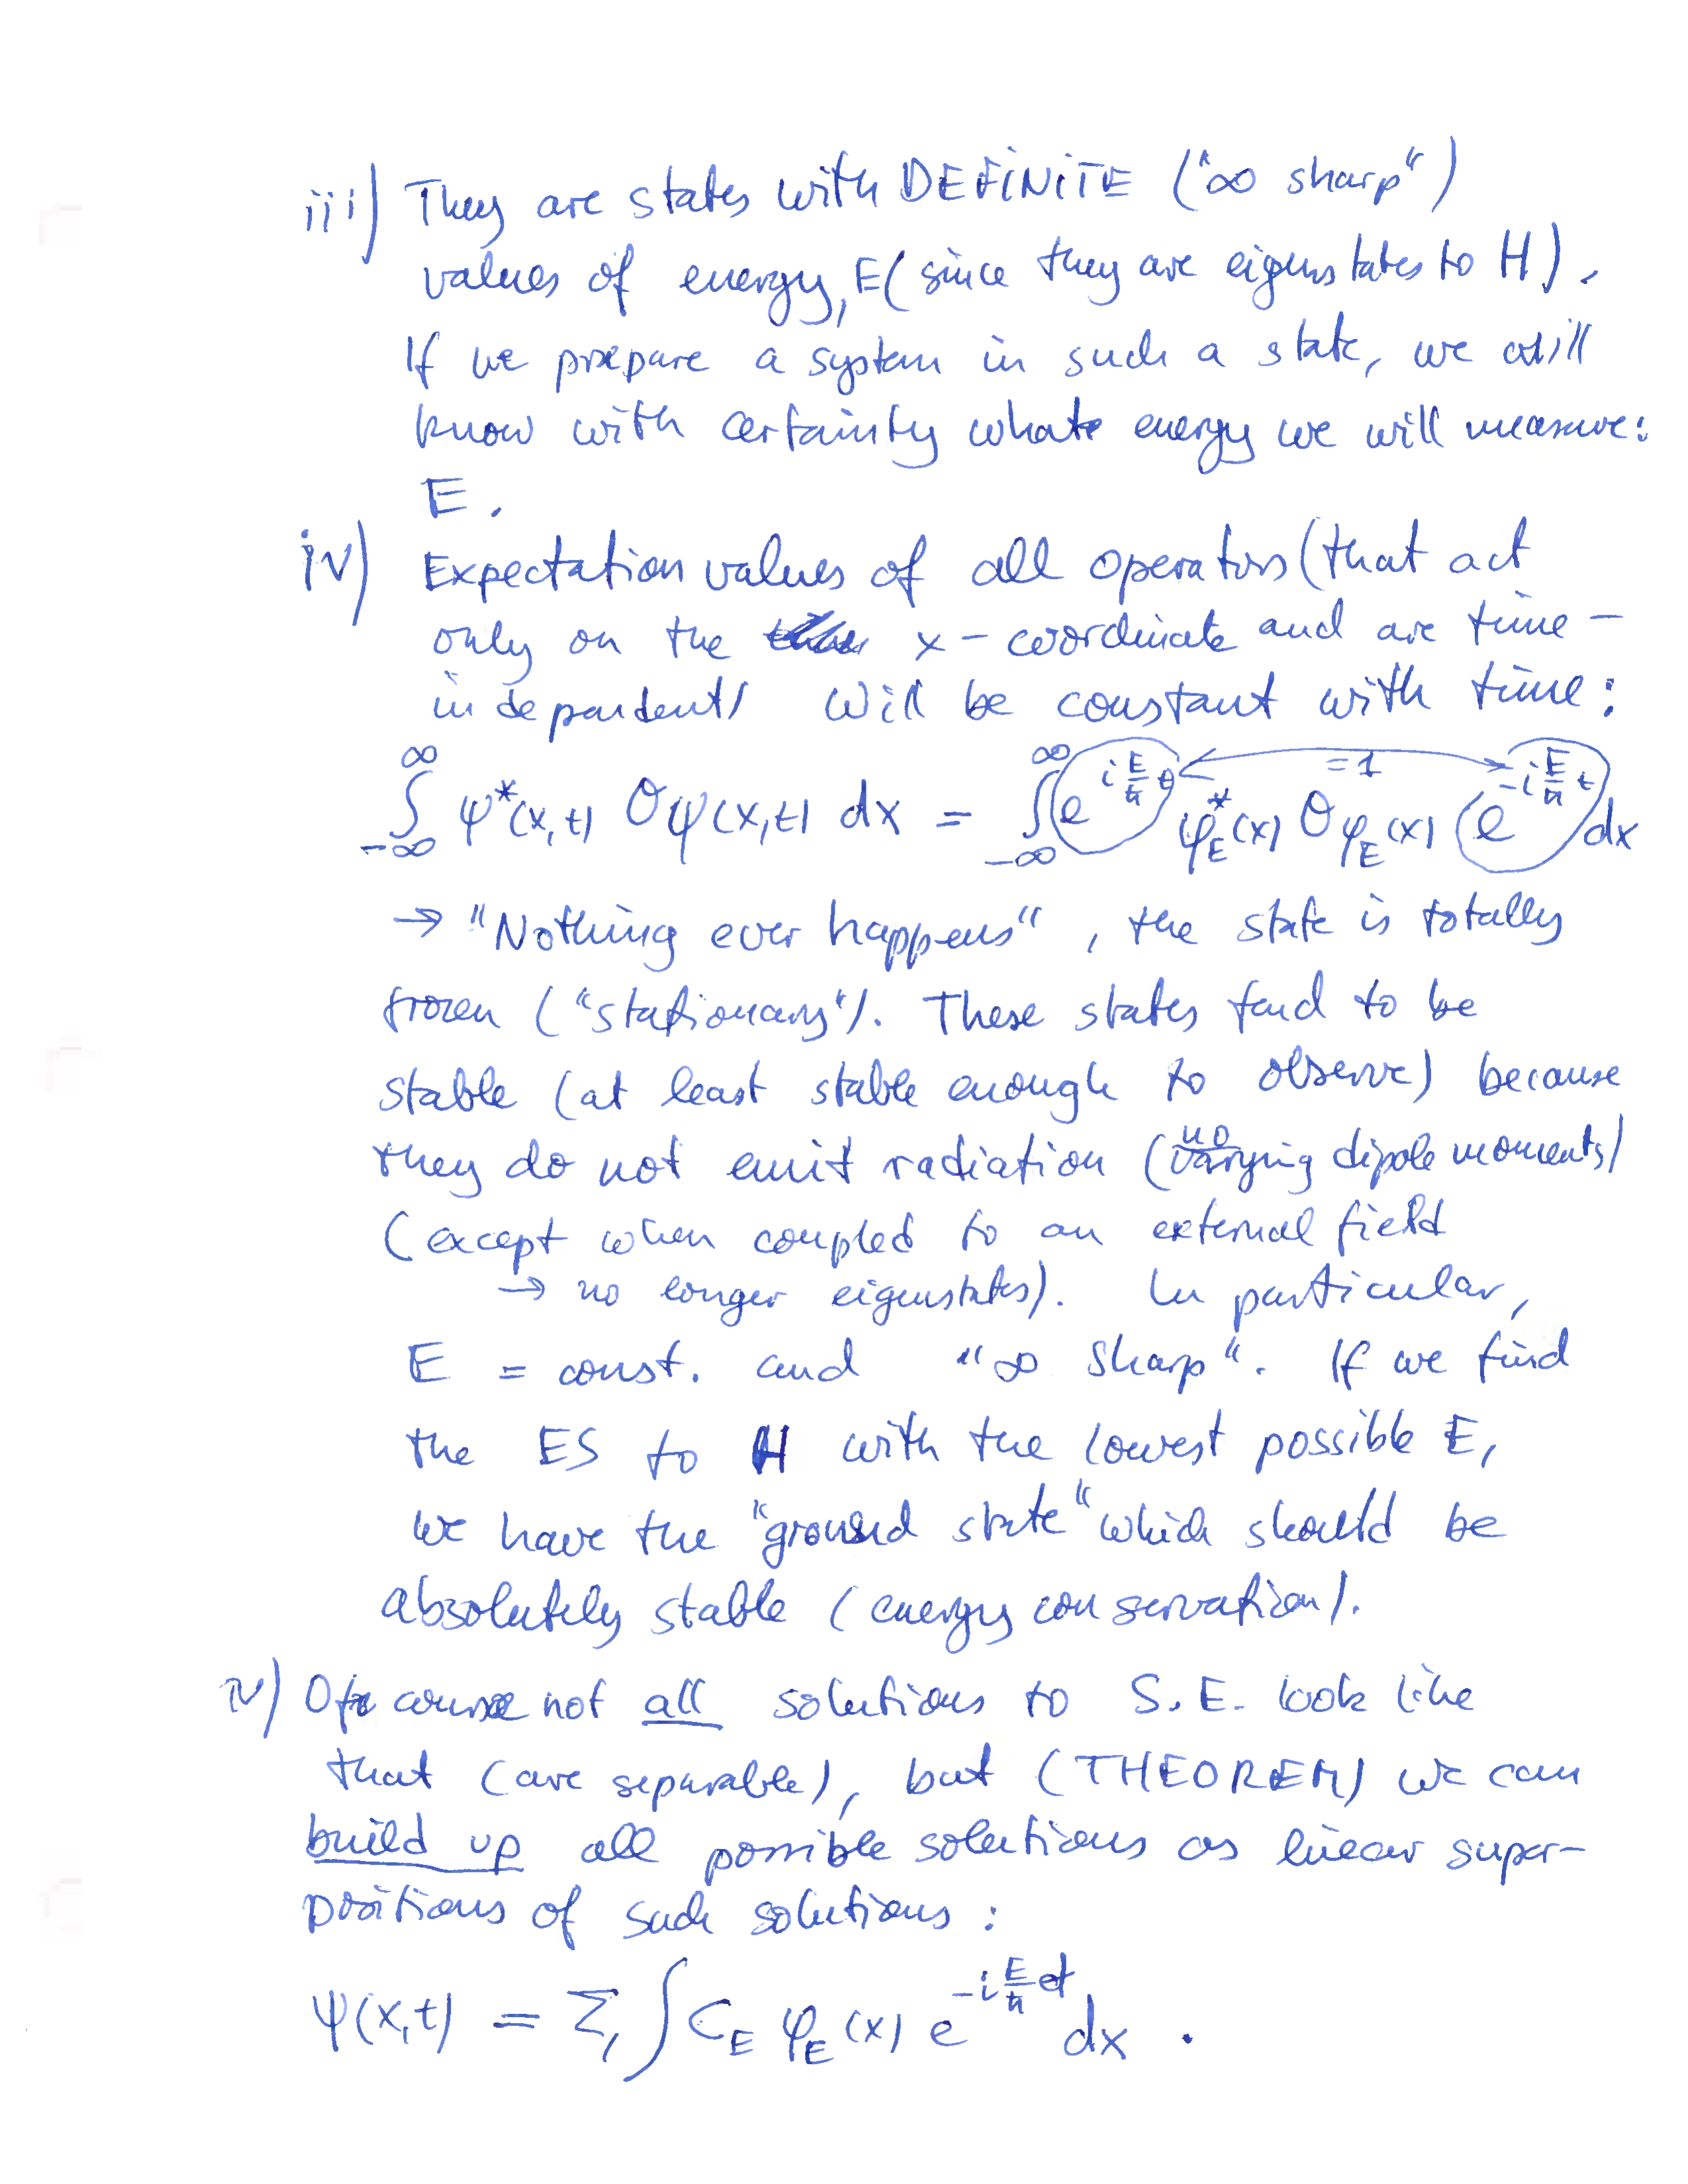 iii) They are states with DEFINITE ("∞ sharp")
values of energy, E (since they are eigenstates to H).
If we prepare a system in such a state, we will
know with certainty what energy we will measure:
E.
iv) Expectation values of all operators (that act
only on the x-coordinate and are time-
independent) will be constant with time:
∫_{-∞}^{∞} ψ*(x,t) O ψ(x,t) dx = ∫_{-∞}^{∞} e^{i E/ħ t} φ_E*(x) O φ_E(x) e^{-i E/ħ t} dx
= 1
→ "Nothing ever happens", the state is totally
frozen ("stationary"). These states tend to be
stable (at least stable enough to observe) because
they do not emit radiation (no varying dipole moments)
(except when coupled to an external field
→ no longer eigenstates). In particular,
E = const. and "∞ sharp". If we find
the ES to H with the lowest possible E,
we have the "ground state" which should be
absolutely stable (energy conservation).
iv) Of course not all solutions to S.E. look like
that (are separable), but (THEOREM) we can
build up all possible solutions as linear super-
positions of such solutions:
ψ(x,t) = Σ, ∫ C_E φ_E(x) e^{-i E/ħ t} dx .